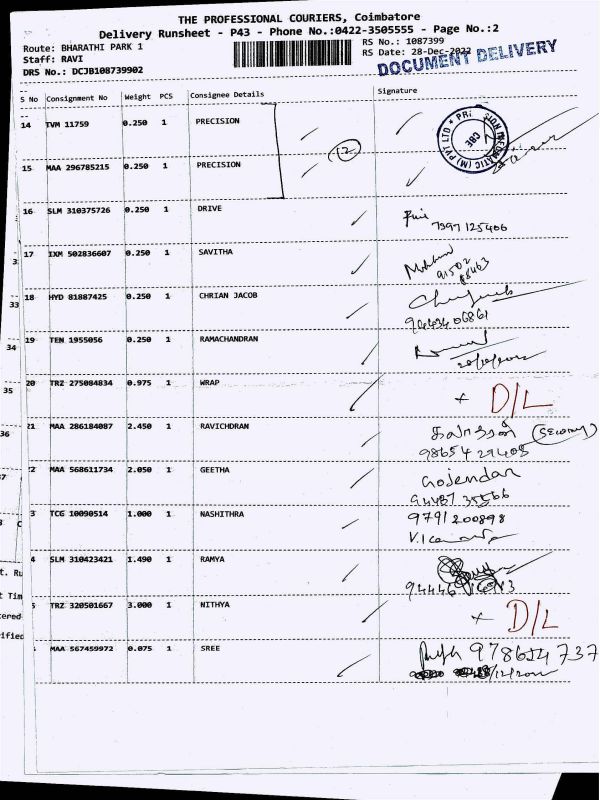 THE PROFESSIONAL COURIERS, Coimbatore
Delivery Runsheet - P43 - Phone No.:0422-3505555 - Page No.:2
Route: BHARATHI PARK 1 RS No.: 1087399
Staff: RAVI RS Date: 28-Dec-2022
DRS No.: DCJB108739902 DOCUMENT DELIVERY
S No Consignment No Weight PCS Consignee Details Signature
14 TVM 11759 0.250 1 PRECISION
12
15 MAA 296785215 0.250 1 PRECISION
16 SLM 310375726 0.250 1 DRIVE
7397125406
17 IXM 502836607 0.250 1 SAVITHA
91502
18 HYD 81887425 0.250 1 CHRIAN JACOB
33
19 TEN 1955056 0.250 1 RAMACHANDRAN
34
20 TRZ 275084834 0.975 1 WRAP + D/L
35
21 MAA 286184087 2.450 1 RAVICHDRAN
36
MAA 568611734 2.050 1 GEETHA
Gajendar
TCG 10090514 1.000 1 NASHITHRA 9791200898
SLM 310423421 1.490 1 RAMYA
TRZ 320501667 3.000 1 NITHYA + D/L
MAA 567459972 0.075 1 SREE